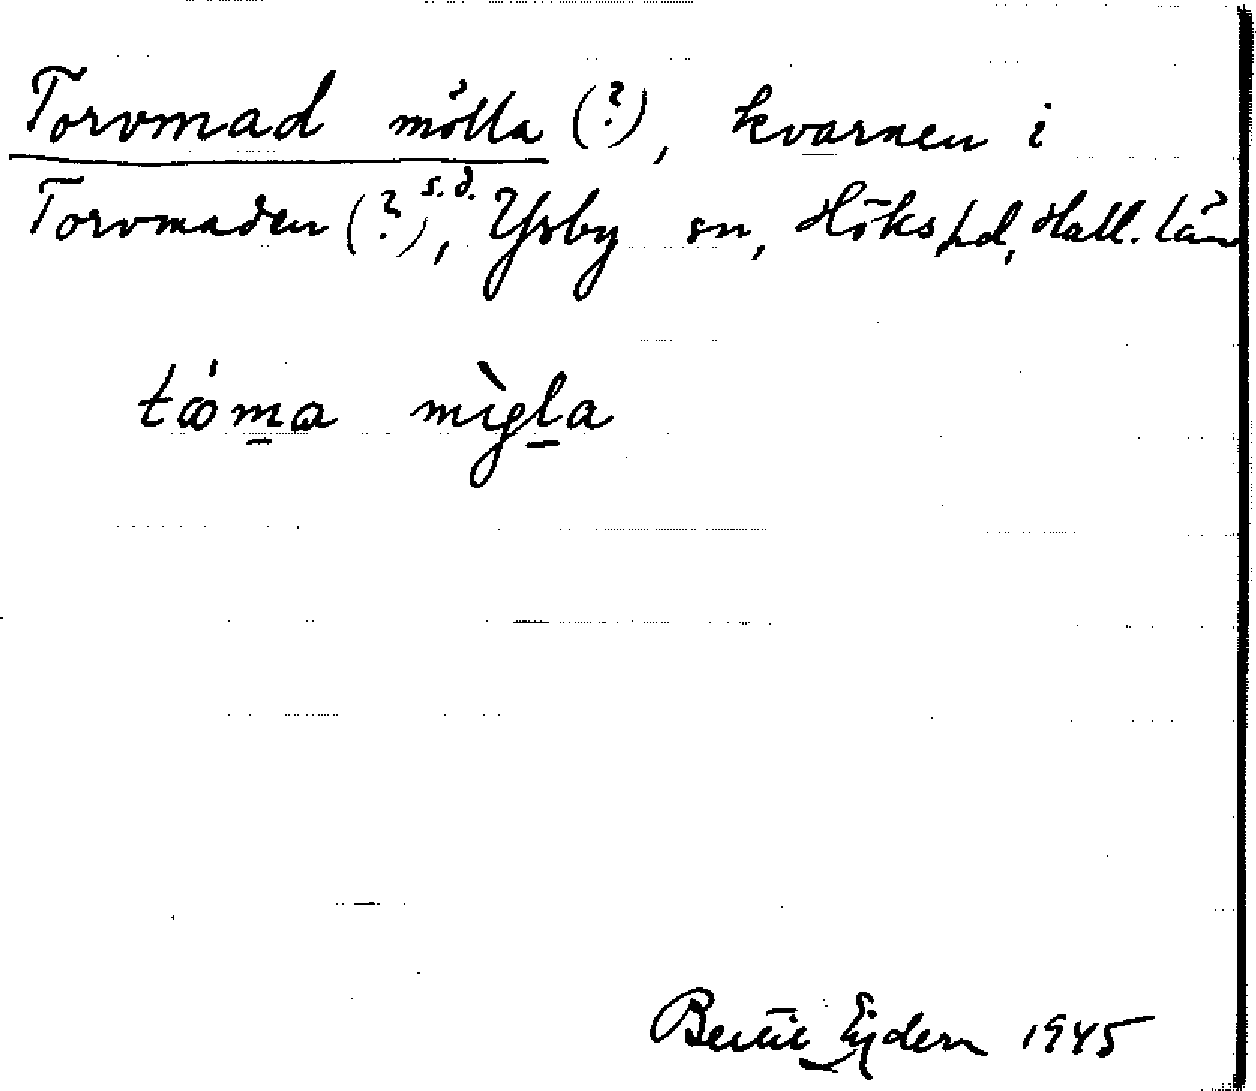 Torvmad mölla (?), kvarnen i
Torvmaden (?) s.d., Ysby sn, Höks hd, Hall. län
Bertil Ejder 1945